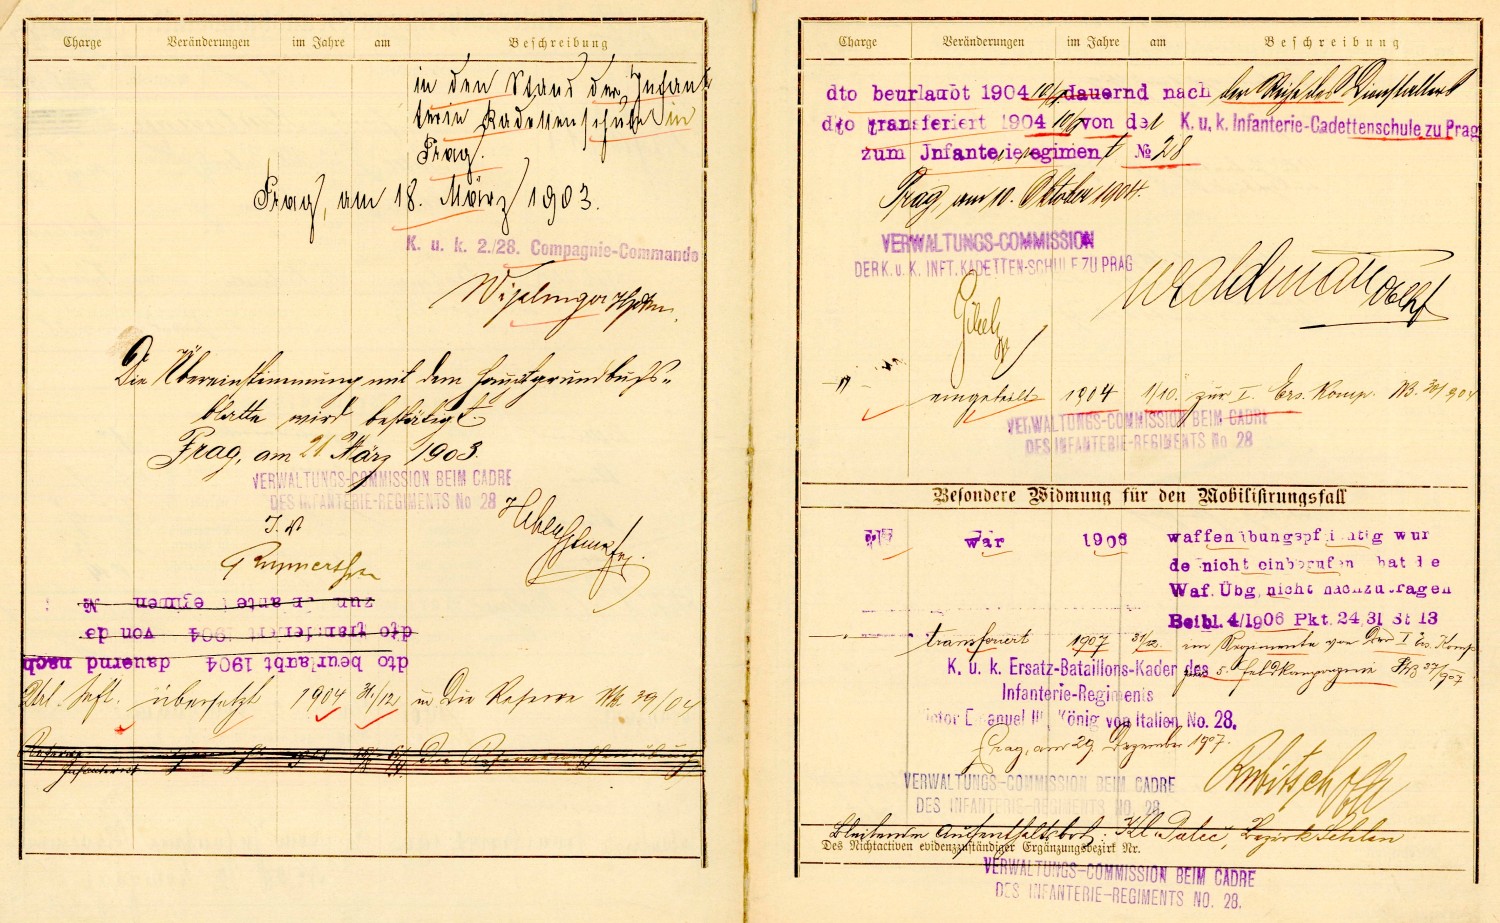 Charge Veränderungen im Jahre am Beschreibung
in den Stand der Infan
terie Kadettenschule in
Prag.
Prag, am 18. März 1903.
K. u. k. 2./28. Compagnie-Commando
Die Übereinstimmung mit dem Hauptgrundbuchs-
blatte wird bestätigt
Prag, am 21 März 1903.
VERWALTUNGS-COMMISSION BEIM CADRE
DES INFANTERIE-REGIMENTS No 28
I. V.
zum Infanterieregiment №
dto transferiert 1904 von de
dto beurlaubt 1904 dauernd nach
übersetzt 1904 31/12 in die Reserve 39/04
Charge Veränderungen im Jahre am Beschreibung
dto beurlaubt 1904 10/ dauernd nach der Dienstalters
dto transferiert 1904 10/ von der K. u. k. Infanterie-Cadettenschule zu Prag
zum Infanterieregiment № 28
Prag, am 10. Oktober 1904.
VERWALTUNGS-COMMISSION
DER K. u. K. INFT. KADETTEN-SCHULE ZU PRAG
Waldman
eingeteilt 1904 1/10. zur I. Ers. Komp.
VERWALTUNGS-COMMISSION BEIM CADRE
DES INFANTERIE-REGIMENTS No 28
Besondere Widmung für den Mobilisirungsfall
war 1906 waffenübungspflichtig wur
de nicht einberufen hat die
Waf. Übg. nicht nachzutragen
Beibl. 4/1906 Pkt. 24, 31 St 13
transferiert 1907 31/12. im Regimente von der I Ers. Komp
zur 5. Feldkompagnie
K. u. k. Ersatz-Bataillons-Kader des
Infanterie-Regiments
Victor Emanuel III, König von Italien No. 28.
Prag, am 29 Dezember 1907.
VERWALTUNGS-COMMISSION BEIM CADRE
DES INFANTERIE-REGIMENTS NO. 28
Bleibende Aufenthaltsort: Kl. Paleč, Bezirk Schlan
Des Nichtactiven evidenzzuständiger Ergänzungsbezirk Nr.
VERWALTUNGS-COMMISSION BEIM CADRE
DES INFANTERIE-REGIMENTS NO. 28.